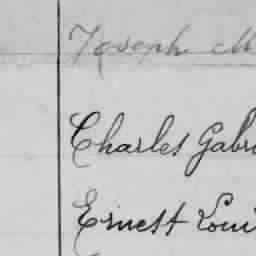 Joseph M
Charles Gabri
Ernest Loui